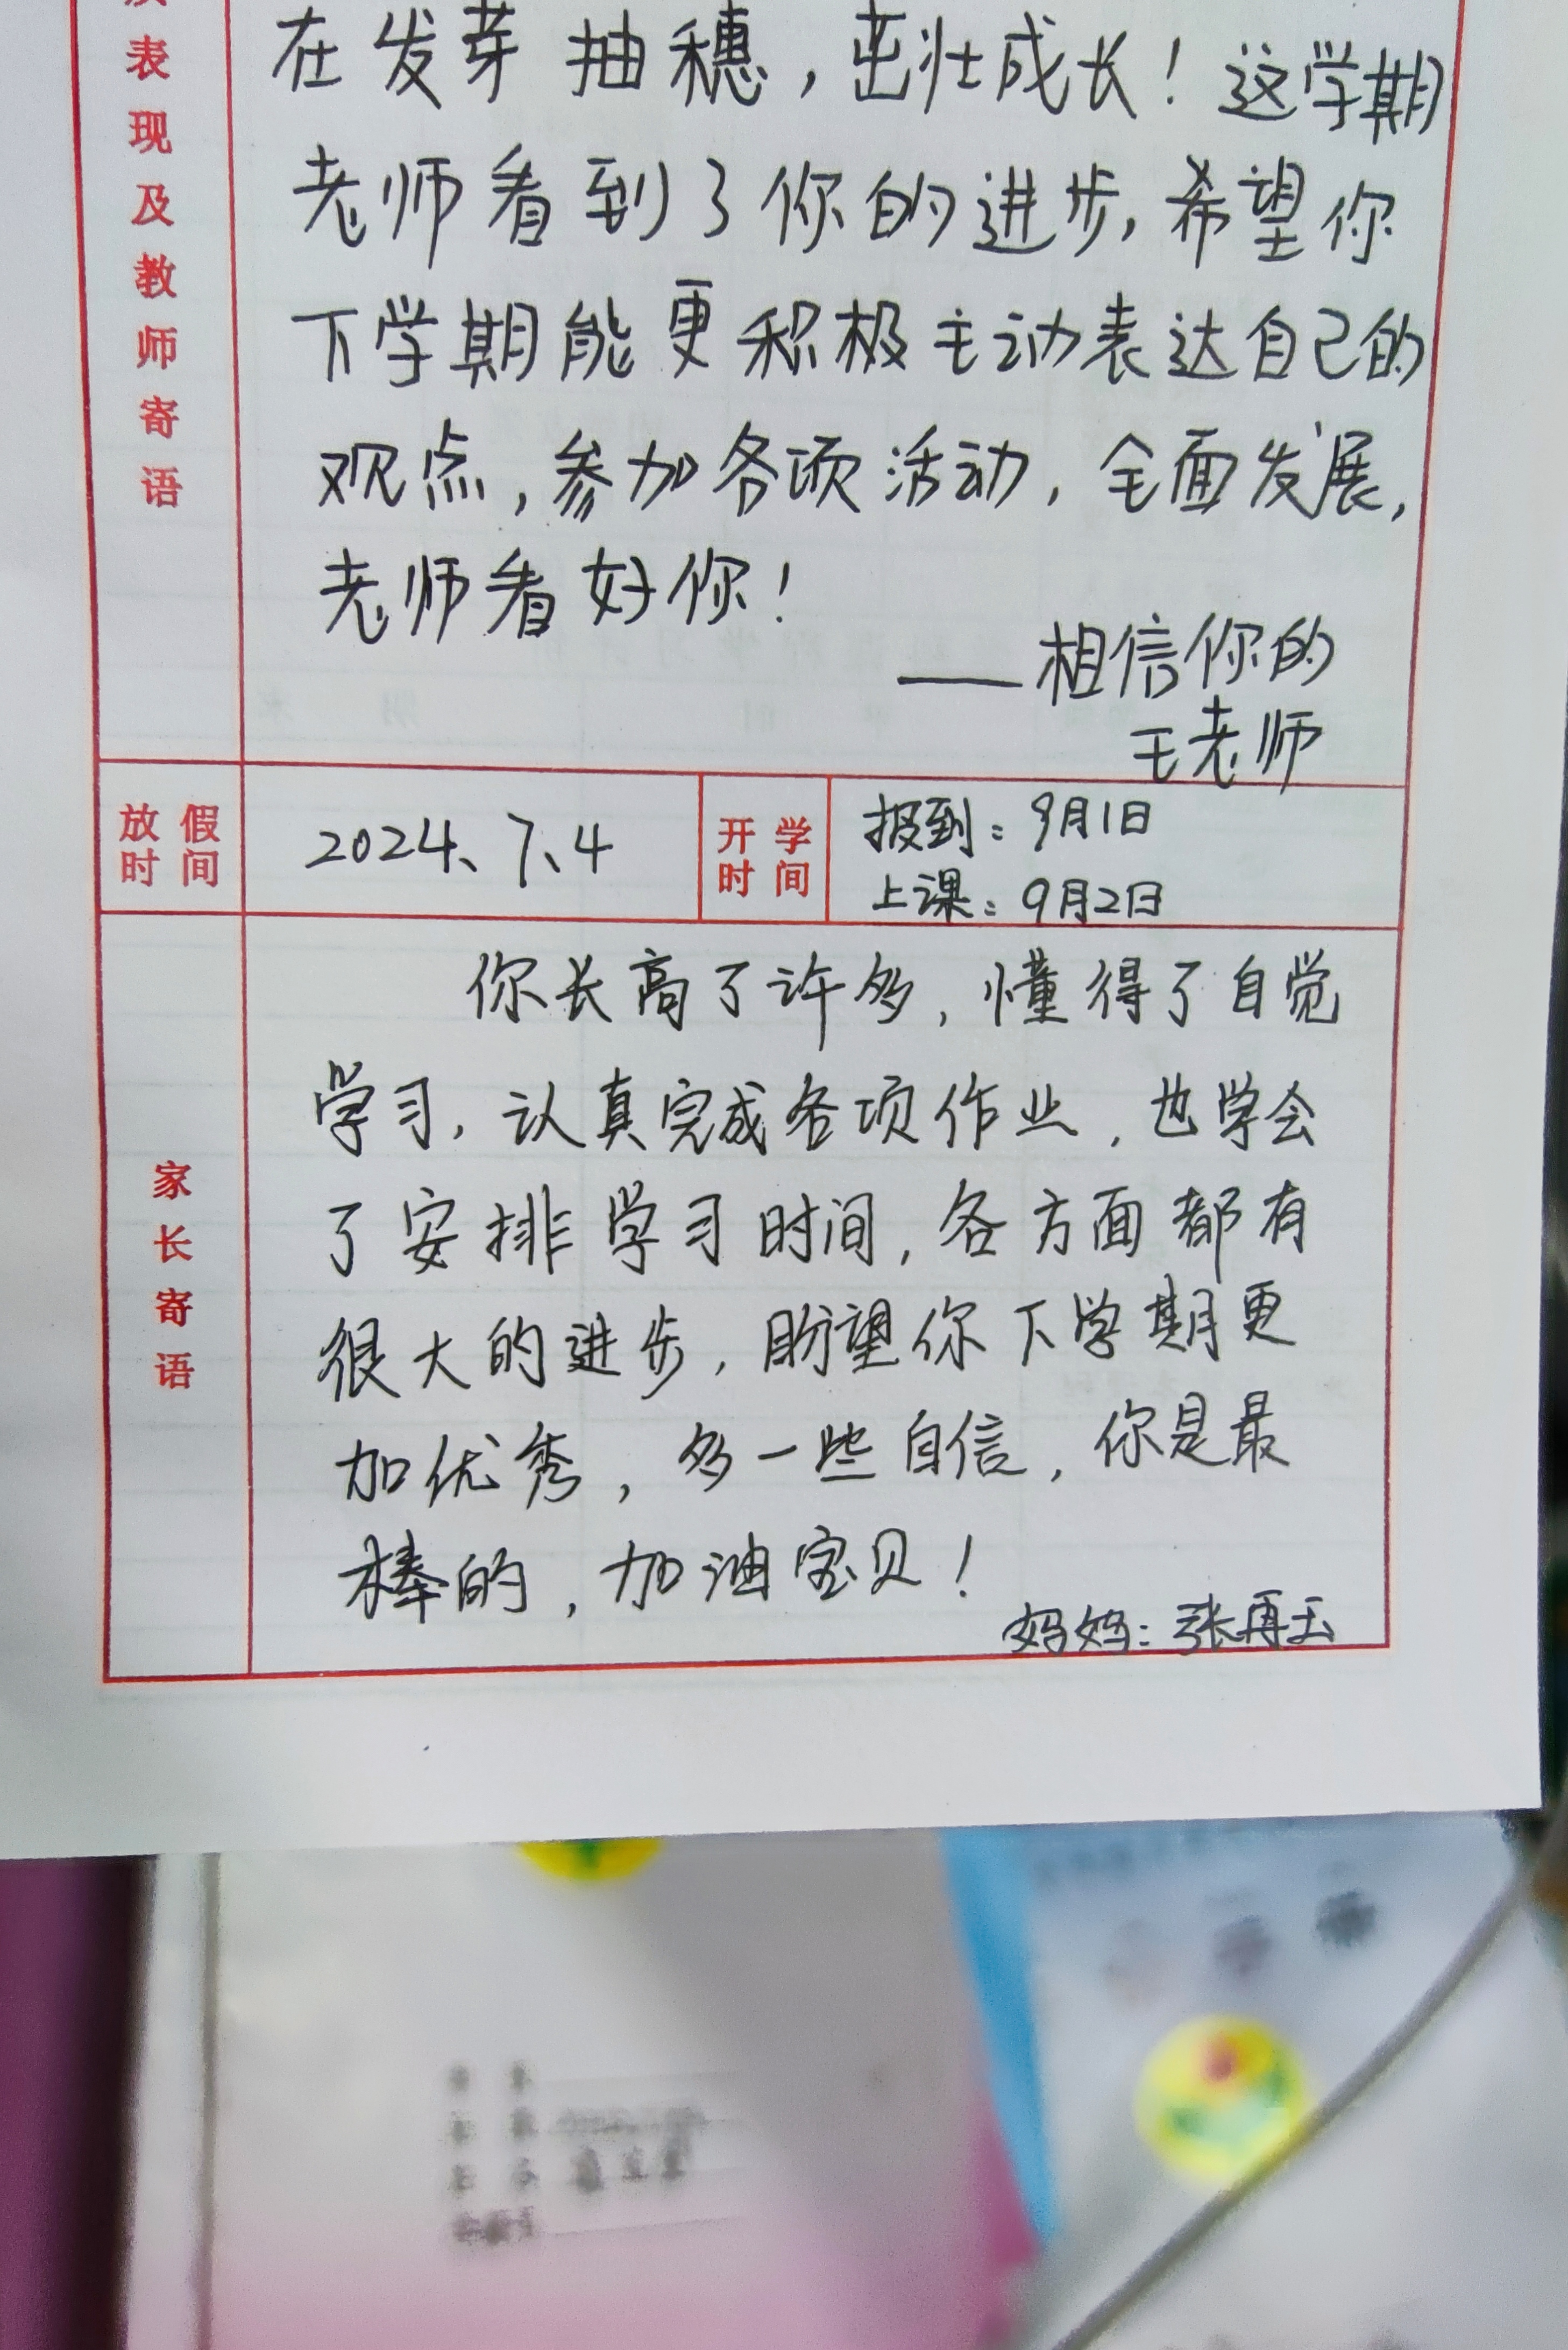 表现及教师寄语
在发芽抽穗，茁壮成长！这学期
老师看到了你的进步，希望你
下学期能更积极主动表达自己的
观点，参加各项活动，全面发展，
老师看好你！
——相信你的
王老师
放假时间
2024、7、4
开学时间
报到：9月1日
上课：9月2日
家长寄语
你长高了许多，懂得了自觉
学习，认真完成各项作业，也学会
了安排学习时间，各方面都有
很大的进步，盼望你下学期更
加优秀，多一些自信，你是最
棒的，加油宝贝！
妈妈：张再玉